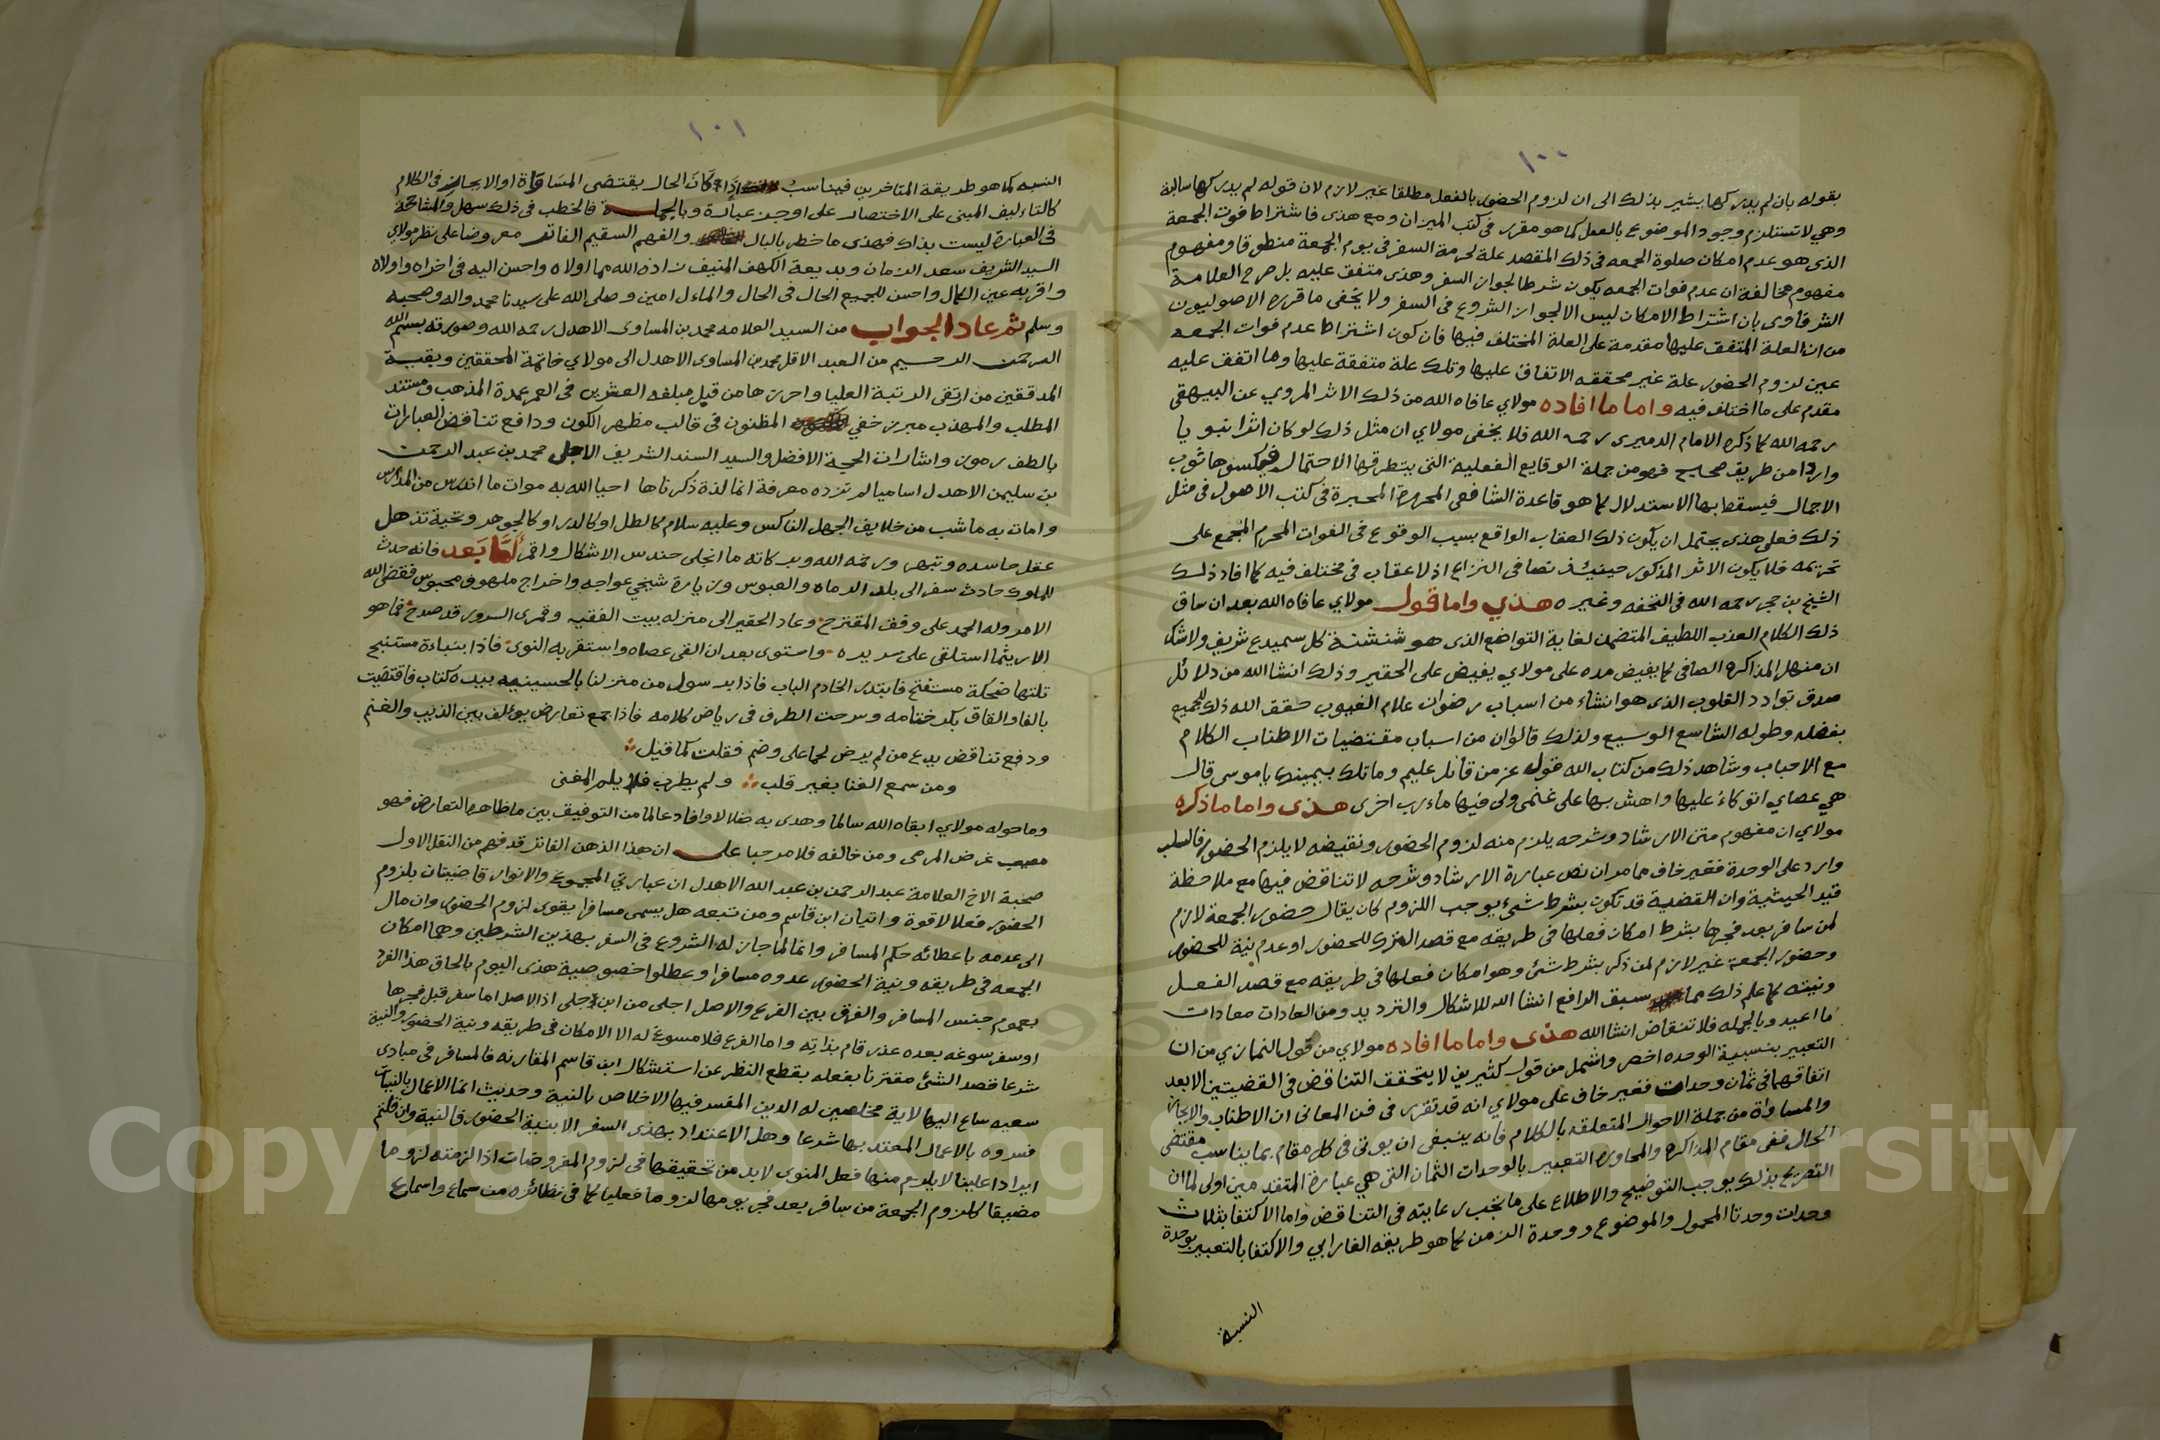 ١٠٠
بقوله بان لم يدركها يشير بذلك الى ان لزوم الحضور بالفعل مطلقا غير لازم لان قوله لم يدركها سالبة
وهي لا تستلزم وجود الموضوع بالفعل كما هو مقرر في كتب الميزان ومع هذى فاشتراط فوت الجمعة
الذى هو عدم امكان صلوة الجمعه في ذلك المقصد علة لحرمة السفر في يوم الجمعة منطوقا ومفهوم
مفهوم مخالفة ان عدم فوات الجمعه يكون شرطا لجواز السفر وهذى متفق عليه بل صرح العلامة
الشرقاوى بان اشتراط الامكان ليس الا لجواز الشروع في السفر ولا يخفى ما قرره الاصوليون
من ان العلة المتفق عليها مقدمة على العلة المختلف فيها فان كون اشتراط عدم فوات الجمعه
عين لزوم الحضور علة غير محققه الاتفاق عليها وتلك علة متفقة عليها وما اتفق عليه
مقدم على ما اختلف فيه واما ما افاده مولاي عافاه الله من ذلك الاثر المروي عن البيهقي
رحمه الله كما ذكره الامام الدميرى رحمه الله فلا يخفى مولاي ان مثل ذلك لو كان اثرا نبويا
واردا من طريق صحيح فهو من جملة الوقايع الفعلية التى يتطرقها الاحتمال فيكسوها ثوب
الاجمال فيسقط بها الاستدلال كما هو قاعدة الشافعي المحررة المحبرة في كتب الاصول في مثل
ذلك فعلى هذى يحتمل ان يكون ذلك العقاب الواقع بسبب الوقوع في الفوات المحرم المجمع على
تحريمه فلا يكون الاثر المذكور حينئذ نصا في النزاع اذ لا عقاب في مختلف فيه كما افاد ذلك
الشيخ بن حجر رحمه الله في التحفه وغيره هذي واما قول مولاي عافاه الله بعد ان ساق
ذلك الكلام العذب اللطيف المتضمن لغاية التواضع الذى هو شنشنة كل سميدع شريف ولا شك
ان منهل المذاكره الصافي كما يفيض مده على مولاي يفيض على الحقير وذلك انشا الله من دلائل
صدق توادد القلوب الذى هو انشاء من اسباب رضوان علام الغيوب حقق الله ذلك للجميع
بفضله وطوله الشاسع الوسيع ولذلك قالوا ان من اسباب مقتضيات الاطناب الكلام
مع الاحباب وشاهد ذلك من كتاب الله قوله عز من قائل عليم وما تلك بيمينك يا موسى قال
هي عصاي اتوكاء عليها واهش بها على غنمى ولى فيها ماءرب اخرى هذى واما ما ذكره
مولاي ان مفهوم متن الارشاد وشرحه يلزم منه لزوم الحضور ونقيضه لا يلزم الحضور فالسلب
وارد على الوحدة فغير خاف مما مر ان نص عبارة الارشاد وشرحه لا تناقض فيها مع ملاحظة
قيد الحيثية وان القضية قد تكون بشرط شيئ يوجب اللزوم كان يقال حضور الجمعة لازم
لمن سافر بعد فجرها بشرط امكان فعلها في طريقه مع قصد الترك للحضور او عدم نية للحضور
وحضور الجمعة غير لازم لمن ذكر بشرط شئ وهو امكان فعلها في طريقه مع قصد الفعل
ونيته كما علم ذلك مما سبق الدافع انشا الله للاشكال والترديد ومن العادات معادات
ما اعيد وبالجمله فلا تناقض انشا الله هذى واما ما افاده مولاي من قول النمازي من ان
التعبير بنسبية الوحده اخصر واشمل من قول كثيرين لا يتحقق التناقض في القضيتين الا بعد
اتفاقهما في ثمان وحدات فغير خاف على مولاي انه قد تقرر في فن المعانى ان الاطناب والايجاز
والمساواة من جملة الاحوال المتعلقه بالكلام فانه ينبغى ان يوتى في كل مقام بما يناسب مقتضى
الحال ففى مقام المذاكره والمحاوره التعبير بالوحدات الثمان التى هي عبارة المتقدمين اولى لما ان
التصريح بذلك يوجب التوضيح والاطلاع على ما تجب رعايته في التناقض واما الاكتفا بثلاث
وحدات وحدتا المحمول والموضوع ووحدة الزمن كما هو طريقه الفارابي والاكتفا بالتعبير بوحدة
النسبة
١٠١
النسبه كما هو طريقة المتاخرين فيناسب اذا كان الحال يقتضى المساواة او الايجاز في الكلام
كالتاءليف المبنى على الاختصار على اوجز عبارة وبالجملة فالخطب في ذلك سهل والمشاححة
في العبارة ليست بذاك فهذى ما خطر بالبال والفهم السقيم الفاتر معروضا على نظر مولاي
السيد الشريف سعد الزمان وبديعة الكهف المنيف زاده الله مما اولاه واحسن اليه في اخراه واولاه
واقر به عين الكمال واحسن للجميع الحال في الحال والماءل امين وصلى الله على سيدنا محمد واله وصحبه
وسلم ثم عاد الجواب من السيد العلامه محمد بن المساوى الاهدل رحمه الله وصورته بسم الله
الرحمن الرحيم من العبد الاقل محمد بن المساوى الاهدل الى مولاي خاتمة المحققين وبقية
المدققين من ارتقى الرتبة العليا واحرزها من قبل مبلغه العشرين في العمر عمدة المذهب ومستند
المطلب والمهذب مبرز خفي المظنون في قالب مظهر الكون ودافع تناقض العبارات
بالطف رموز واشارات الحجة الافضل والسيد السند الشريف الاجل محمد بن عبد الرحمن
بن سليمن الاهدل اساميا لم تزده معرفة انما لذة ذكرناها احيا الله به موات ما اندرس من المدارس
وامات به ما شب من خلايف الجهل الناكس وعليه سلام كالطل او كالدر او كالجوهر وتحية تذهل
عقل حاسده وتبهر ورحمة الله وبركاته ما انجلى حندس الاشكال واقمر أما بعد فانه حدث
للملوك حادث سفر الى بلد الرماه والعبوس وزيارة شيخي عواجه واخراج ملهوف محبوس فقضى الله
الامر وله الحمد على وفق المقترح وعاد الحقير الى منزله بيت الفقيه وقمرى السرور قد صدح فما هو
الا ريثما استلقى على سريره واستوى بعد ان القى عصاه واستقر به النوى فاذا بنباءة مستنبح
تلتها ضحكة مستفتح فابتدر الخادم الباب فاذا برسول من منزلنا بالحسينيه بيده كتاب فاقتضيت
بالفا والقاف بكر ختامه وسرحت الطرف في رياض كلامه فاذا جمع تعارض يوءلف بين الذيب والغنم
ودفع تناقض يدع من لم يرض لحما على وضم فقلت كما قيل
ومن سمع الغنا بغير قلب ولم يطرب فلا يلم المغنى
وما حوله مولاي ابقاه الله سالما وهدى به ضلالا وافاد عالما من التوفيق بين ما ظاهره التعارض فهو
مصيب غرض المرمى ومن خالفه فلا مرحبا على ان هذا الذهن الفاتر قد فهم من النقل الاول
صحبة الاخ العلامة عبد الرحمن بن عبد الله الاهدل ان عبارتي المجموع والانوار قاضيتان بلزوم
الحضور فعلا لا قوة واتيان ابن قاسم ومن تبعه هل يسمى مسافرا يقوى لزوم الحضور وان مال
الى عدمه باعطائه حكم المسافر وانما لما جاز له الشروع في السفر بهذين الشرطين وهما امكان
الجمعه في طريقه ونية الحضور عدوه مسافرا وعطلوا خصوصية هذى اليوم بالحاق هذا الفرد
بعموم جنس المسافر والفرق بين الفرع والاصل اجلى من ابن جلى اذ الاصل اما سفر قبل فجرها
او سفر سوغه بعده عذر قام بذاته واما الفرع فلا مسوغ له الا الامكان في طريقه ونية الحضور والنية
شرعا قصد الشئ مقترنا بفعله بقطع النظر عن استشكال ابن قاسم المقارنه فالمسافر في مبادى
سعيه ساع اليها لاية مخلصين له الدين المفسر فيها الاخلاص بالنية وحديث انما الاعمال بالنيات
فسروه بالاعمال المعتد بها شرعا وهل الاعتداد بهذى السفر الا بنية الحضور فالنية وان قلتم
ايرادا علينا لا يلزم منها فعل المنوى لابد من تحقيقها في لزوم المفروضات اذا لزمته لزوما
مضيقا كلزوم الجمعة من سافر بعد فجر يومها لزوما فعليا كما في نظائره من سماع واسماع
Copyright © King Saud University